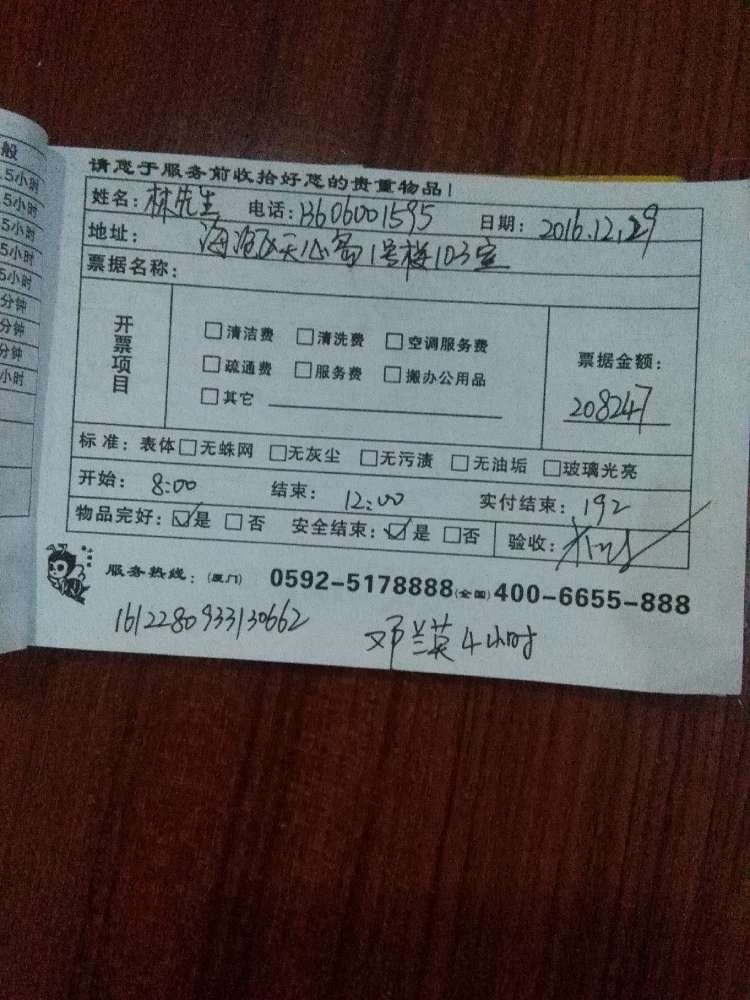 般
.5小时
.5小时
.5小时
5小时
5小时
分钟
分钟
分钟
小时
请您于服务前收拾好您的贵重物品！
姓名：林先生 电话：13606001595 日期：2016.12.29
地址：海沧区天心岛1号楼103室
票据名称：
开票项目
□清洁费 □清洗费 □空调服务费
□疏通费 □服务费 □搬办公用品
□其它
票据金额：
208247
标准：表体□无蛛网 □无灰尘 □无污渍 □无油垢 □玻璃光亮
开始：8:00 结束：12:00 实付结束：192
物品完好：☑是 □否 安全结束：☑是 □否 验收：
服务热线：(厦门) 0592-5178888(全国)400-6655-888
1612280933130662 邓兰英4小时